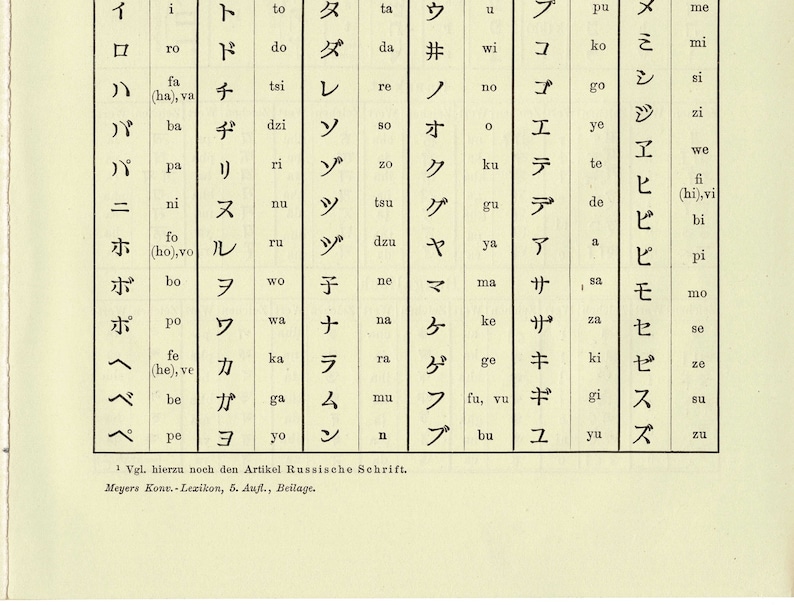 イ i ト to タ ta ウ u プ pu メ me
ロ ro ド do ダ da 井 wi コ ko ミ mi
ハ fa (ha), va チ tsi レ re ノ no ゴ go シ si
バ ba ヂ dzi ソ so オ o エ ye ジ zi
パ pa リ ri ゾ zo ク ku テ te ヱ we
ニ ni ヌ nu ツ tsu グ gu デ de ヒ fi (hi), vi
ホ fo (ho), vo ル ru ヅ dzu ヤ ya ア a ビ bi
ボ bo ヲ wo 子 ne マ ma サ sa ピ pi
ポ po ワ wa ナ na ケ ke ザ za モ mo
ヘ fe (he), ve カ ka ラ ra ゲ ge キ ki セ se
ベ be ガ ga ム mu フ fu, vu ギ gi ゼ ze
ペ pe ヨ yo ン n ブ bu ユ yu ス su
ズ zu
¹ Vgl. hierzu noch den Artikel Russische Schrift.
Meyers Konv.-Lexikon, 5. Aufl., Beilage.